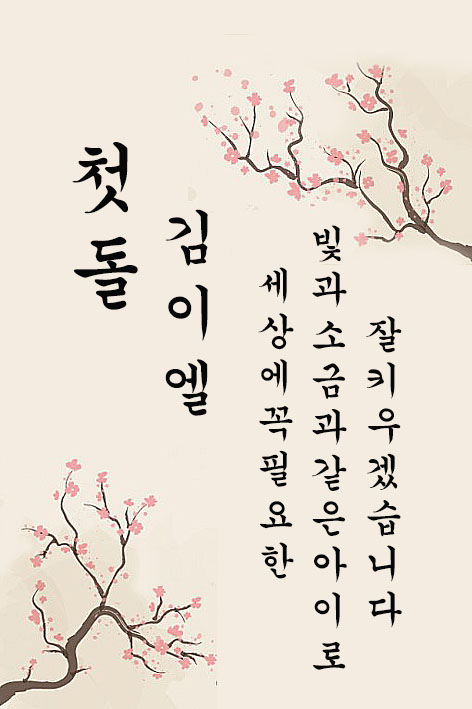 첫돌
김이엘
세상에꼭필요한
빛과소금과같은아이로
잘키우겠습니다